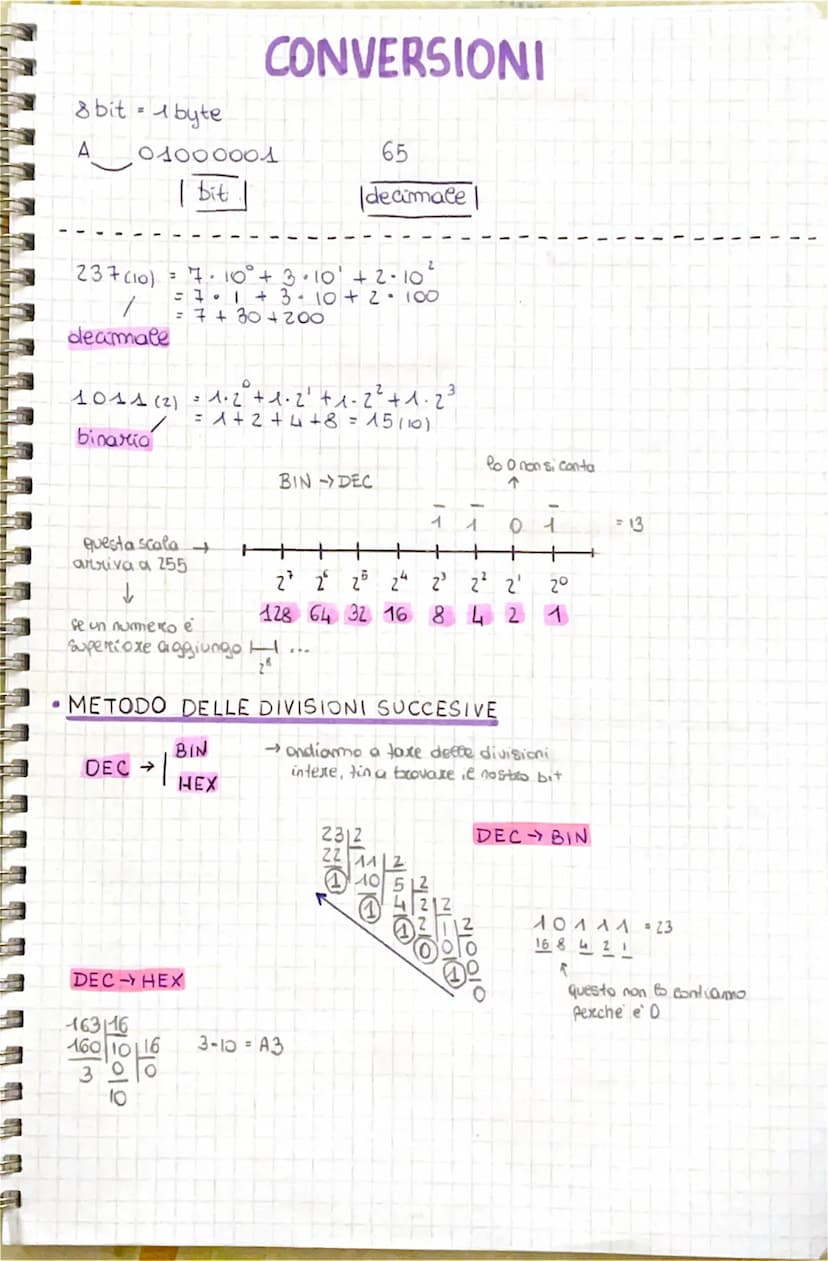 CONVERSIONI
8 bit = 1 byte
A 01000001 65
bit decimale
237(10) = 7·10⁰ + 3·10¹ + 2·10²
= 7·1 + 3·10 + 2·100
= 7 + 30 + 200
decimale
1011(2) = 1·2⁰ + 1·2¹ + 1·2² + 1·2³
= 1 + 2 + 4 + 8 = 15(10)
binario
lo 0 non si conta
BIN → DEC ↑
1 1 0 1 = 13
questa scala →
arriva a 255
2⁷ 2⁶ 2⁵ 2⁴ 2³ 2² 2¹ 2⁰
↓
128 64 32 16 8 4 2 1
se un numero è
superiore aggiungo ...
2⁸
• METODO DELLE DIVISIONI SUCCESIVE
DEC → BIN
HEX
→ andiamo a fare delle divisioni
intere, fin a trovare il nostro bit
DEC → BIN
23 2
22 11 2
1 10 5 2
1 4 2 2
1 2 1 2
0 0 0
1 0
0
10111 = 23
16 8 4 2 1
questo non lo contiamo
perchè è 0
DEC → HEX
163 16
160 10 16
3 0 0
10
3-10 = A3